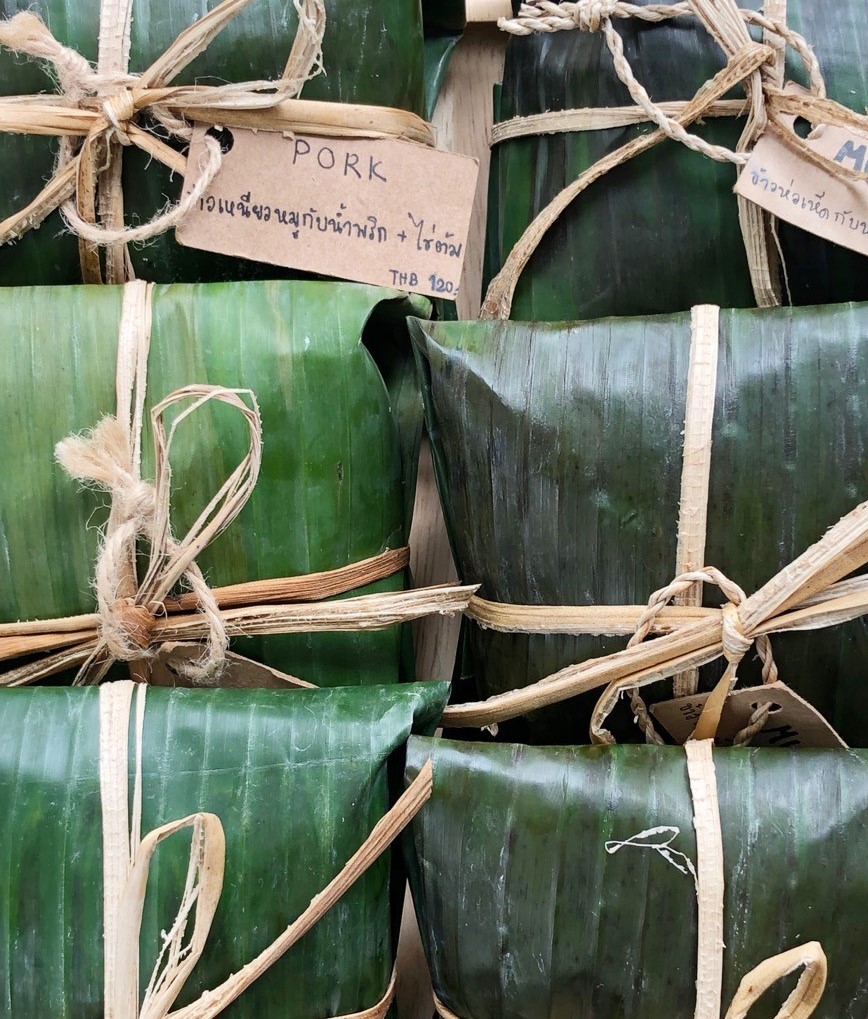 PORK
ข้าวเหนียวหมูกับน้ำพริก + ไข่ต้ม
THB 120.
M
ข้าวห่อเห็ด กับ
MU